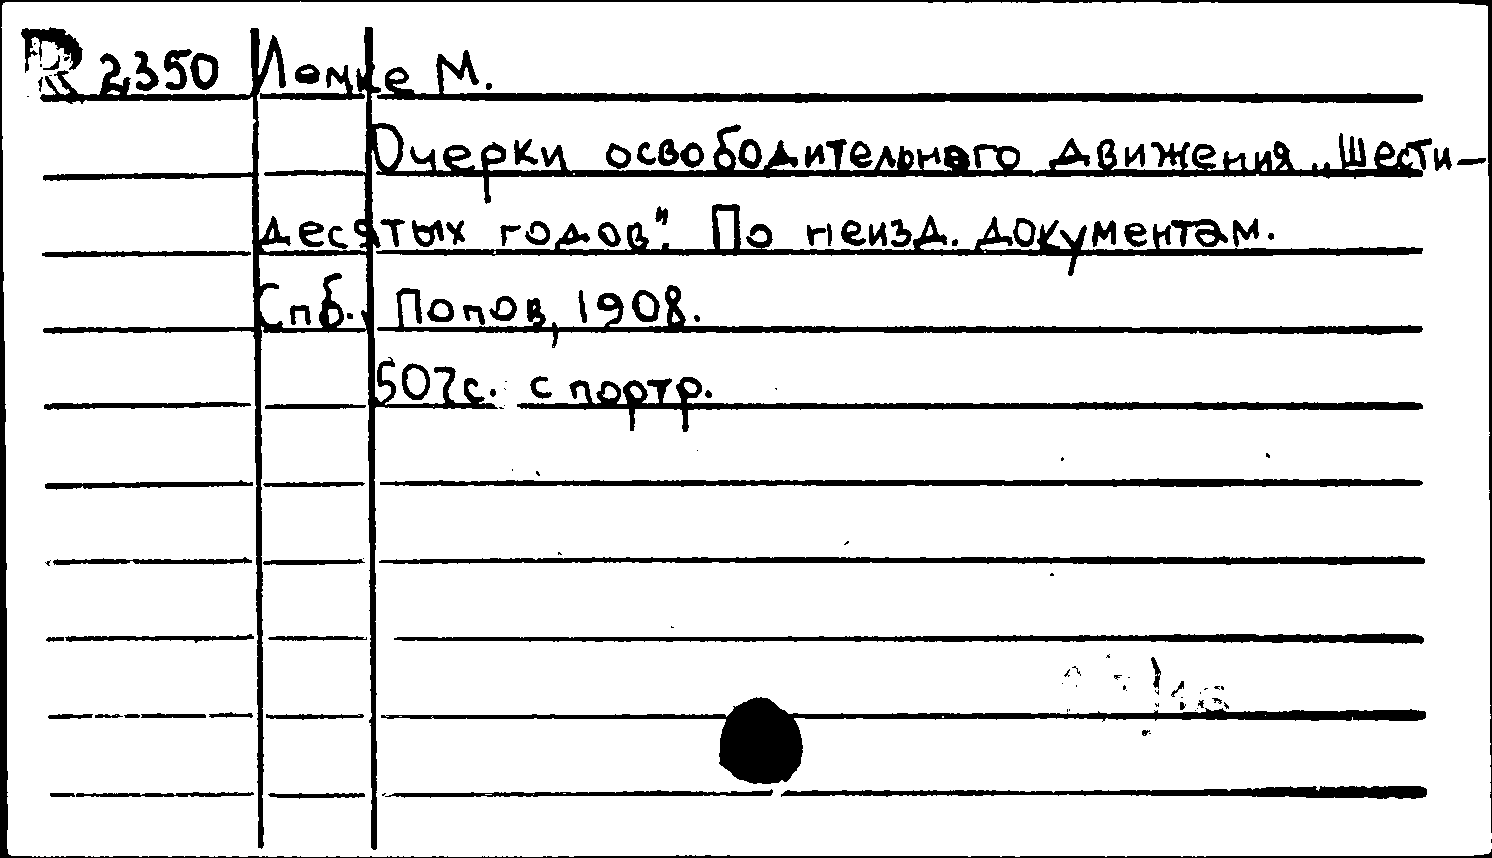 R 2350 Лемке М.
Очерки освободительного движения „Шести-
десятых годов". По неизд. документам.
Спб., Попов, 1908.
507с. с портр.